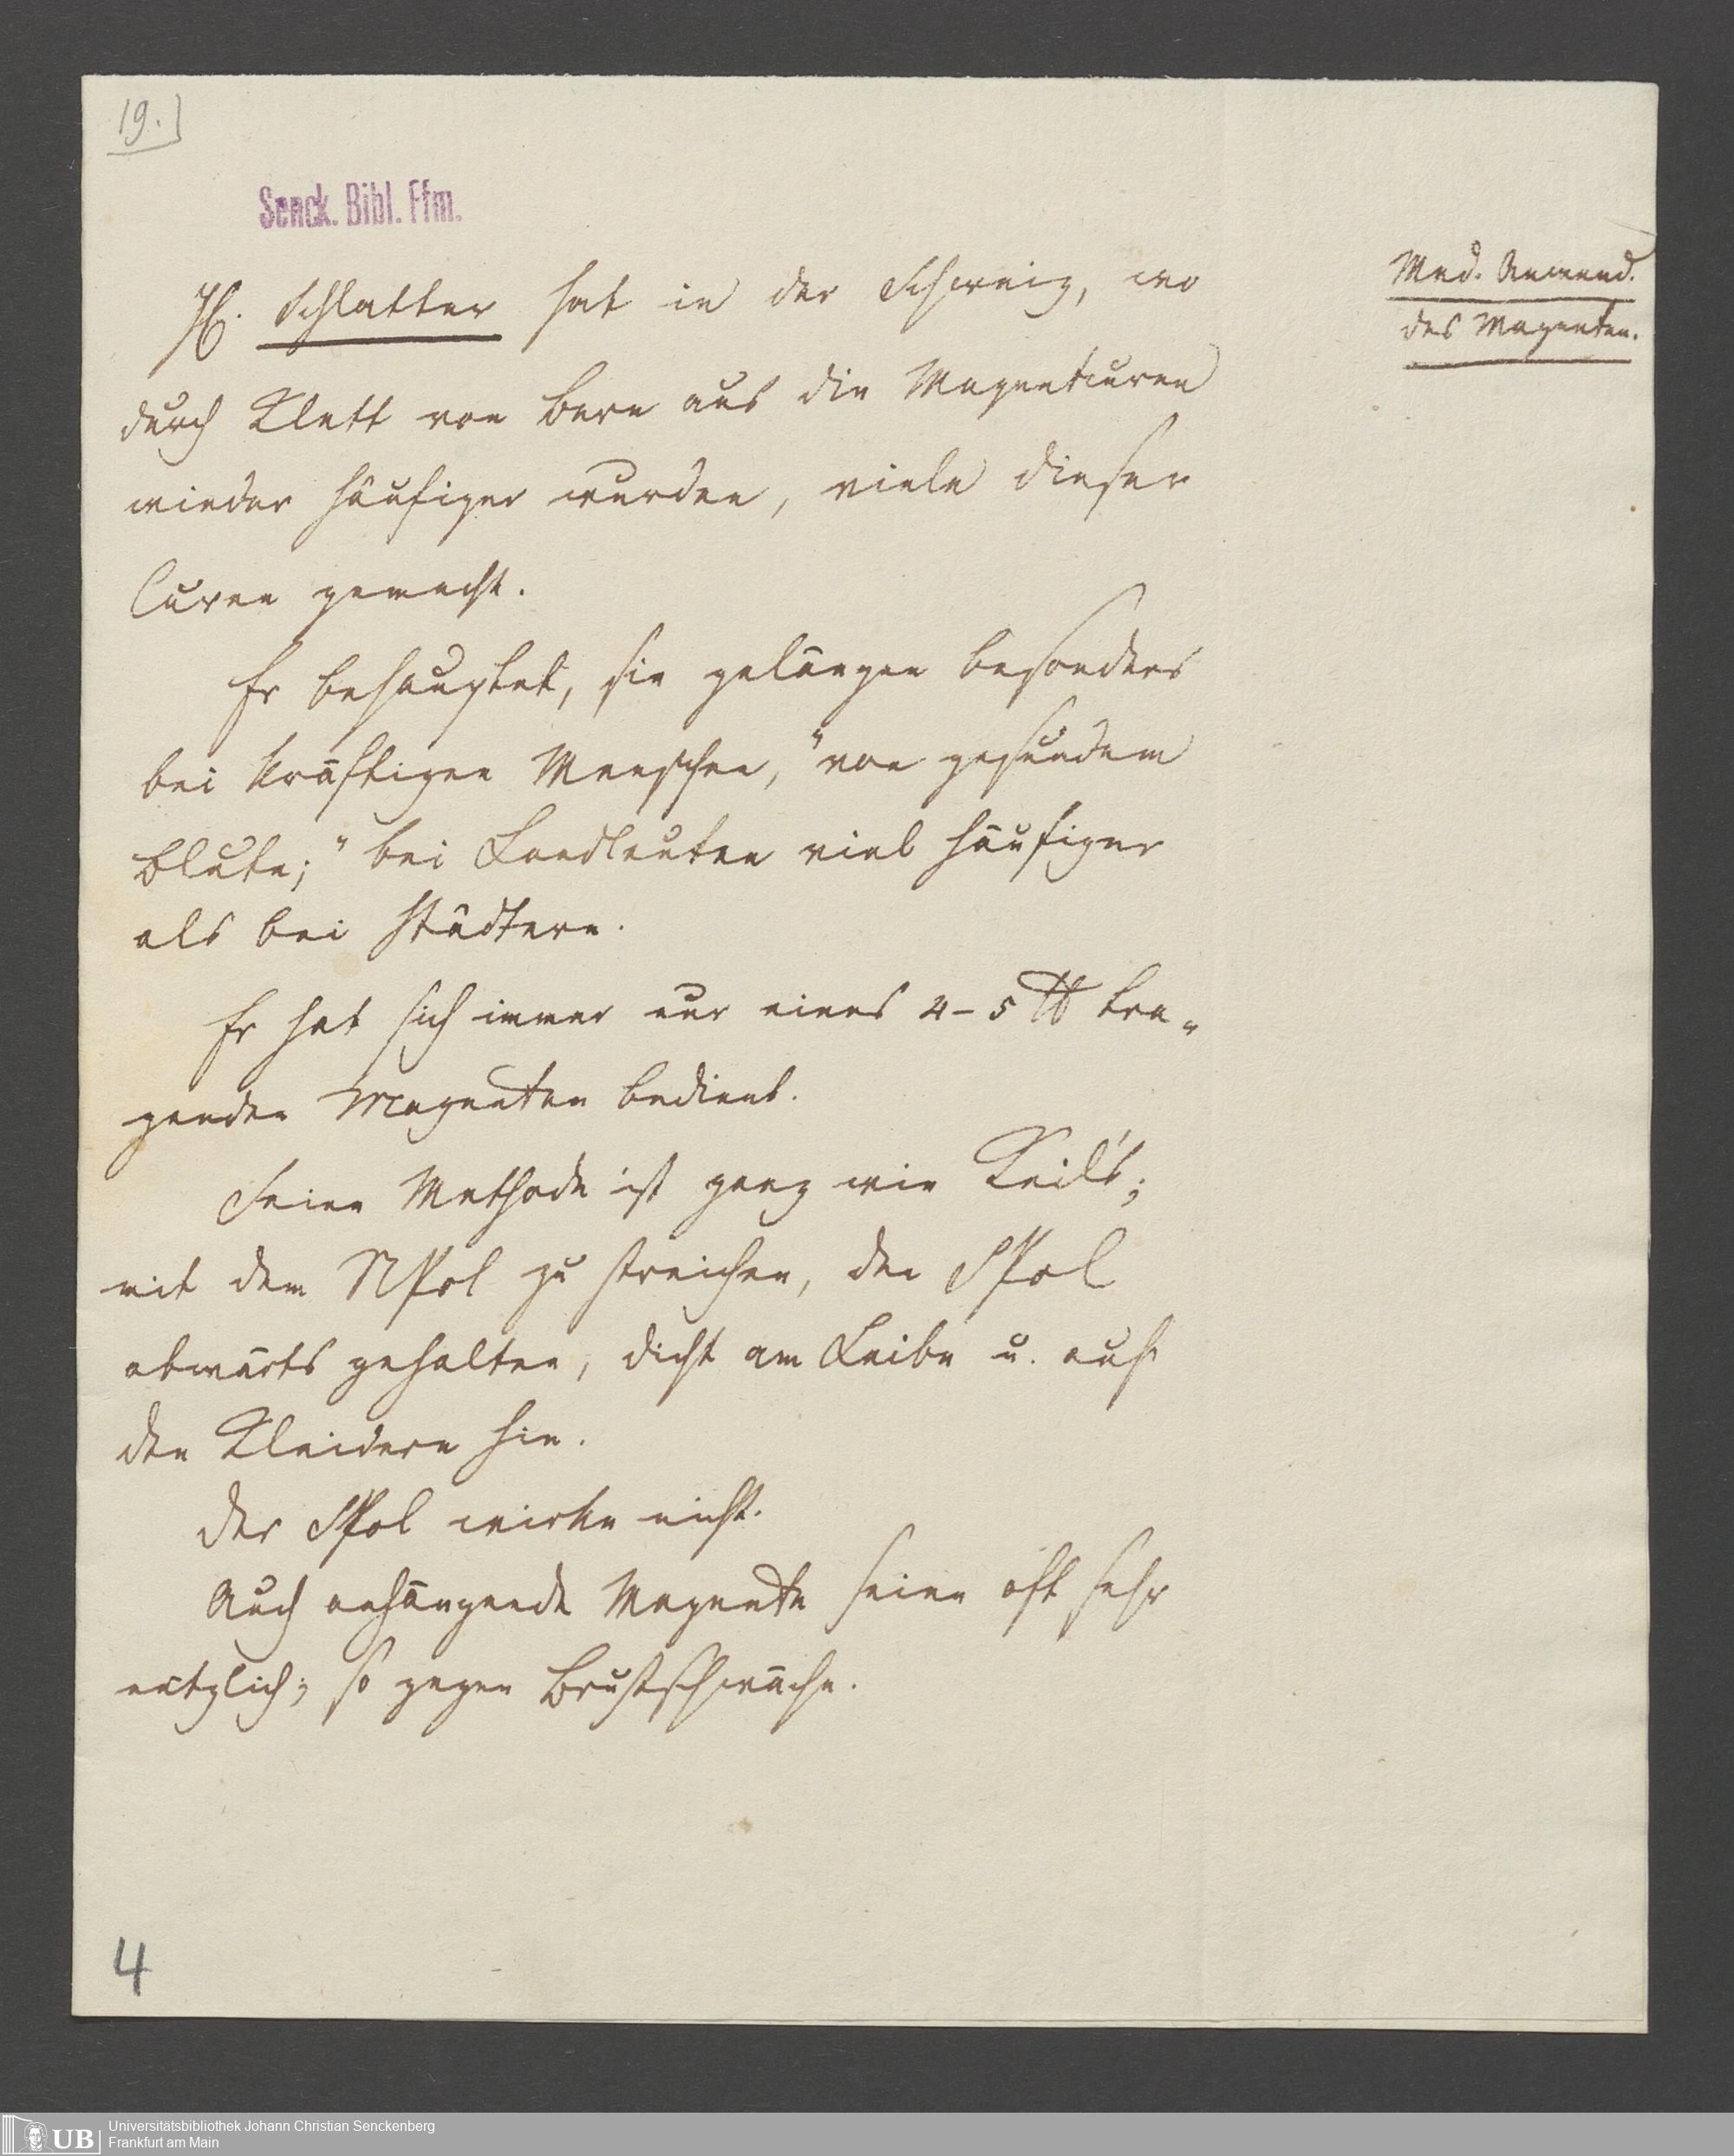 19.]
Senck. Bibl. Ffm.
Med. Anwend.
des Magneten.
H. Schlatter hat in der Schweiz, wo
durch Klett von Bern aus die Magnetcuren
wieder häufiger wurden, viele dieser
Curen gemacht.
Er behauptet, sie gelängen besonders
bei kräftigen Menschen, "von gesundem
Blute;" bei Landleuten viel häufiger
als bei Städtern.
Er hat sich immer nur eines 4-5 ℔ tra-
genden Magneten bedient.
Seine Methode ist ganz wie Keil's;
mit dem NPol zu streichen, den SPol
abwärts gehalten, dicht am Leibe u. auf
den Kleidern hin.
Der SPol wirke nicht.
Auch anhängende Magnete seien oft sehr
nützlich; so gegen Brustschwäche.
4
UB
Universitätsbibliothek Johann Christian Senckenberg
Frankfurt am Main